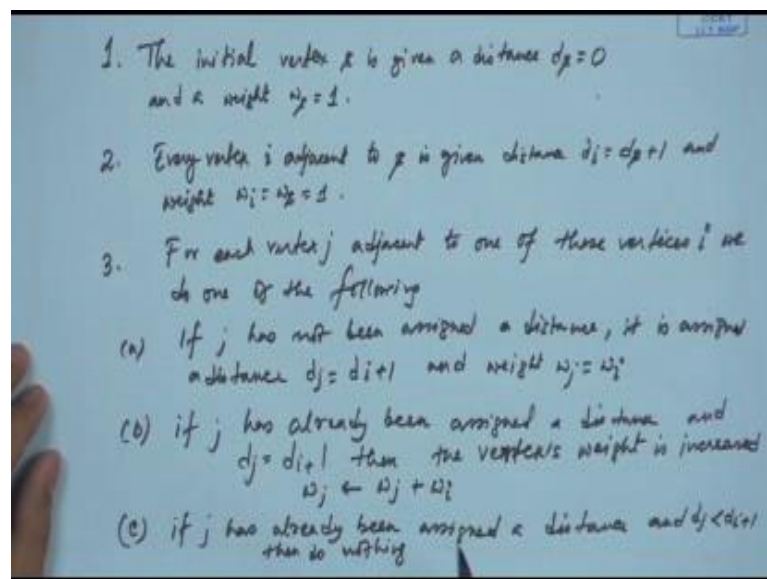 1. The initial vertex s is given a distance ds = 0
and a weight ws = 1.
2. Every vertex i adjacent to s is given distance di = ds+1 and
weight wi = ws = 1.
3. For each vertex j adjacent to one of those vertices i we
do one of the following
(a) If j has not been assigned a distance, it is assigned
a distance dj = di+1 and weight wj = wi
(b) if j has already been assigned a distance and
dj = di+1 then the vertex's weight is increased
wj ← wj + wi
(c) if j has already been assigned a distance and dj < di+1
then do nothing